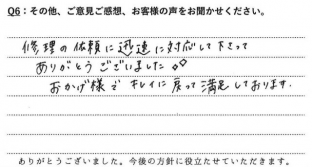 Q6：その他、ご意見ご感想、お客様の声をお聞かせください。
修理の依頼に迅速に対応して下さって
ありがとうございました◇◇
おかげ様でキレイに戻って満足しております.
ありがとうございました。今後の方針に役立たせていただきます。